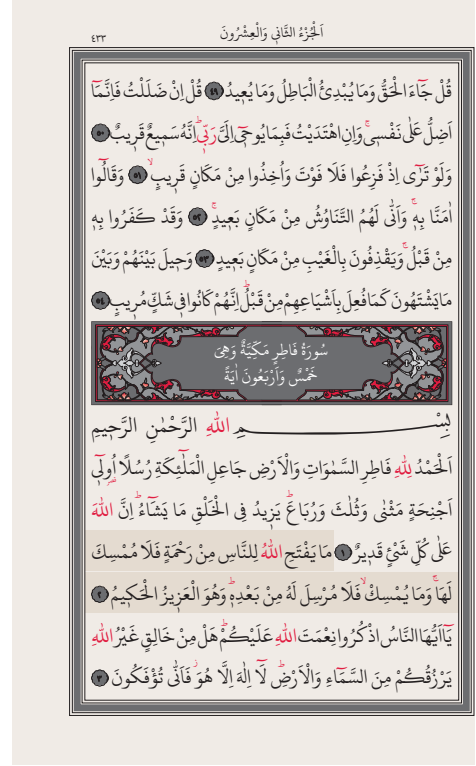 اَلْجُزْءُ الثَّانٖي وَالْعِشْرُونَ
٤٣٣
قُلْ جَٓاءَ الْحَقُّ وَمَا يُبْدِئُ الْبَاطِلُ وَمَا يُعٖيدُ ﴿٤٩﴾ قُلْ اِنْ ضَلَلْتُ فَاِنَّمَٓا
اَضِلُّ عَلٰى نَفْسٖيۚ وَاِنِ اهْتَدَيْتُ فَبِمَا يُوحٖٓي اِلَيَّ رَبّٖيؕ اِنَّهُ سَمٖيعٌ قَرٖيبٌ ﴿٥٠﴾
وَلَوْ تَرٰٓى اِذْ فَزِعُوا فَلَا فَوْتَ وَاُخِذُوا مِنْ مَكَانٍ قَرٖيبٍۙ ﴿٥١﴾ وَقَالُٓوا
اٰمَنَّا بِهٖۚ وَاَنّٰى لَهُمُ التَّنَاوُشُ مِنْ مَكَانٍ بَعٖيدٍۚ ﴿٥٢﴾ وَقَدْ كَفَرُوا بِهٖ
مِنْ قَبْلُۚ وَيَقْذِفُونَ بِالْغَيْبِ مِنْ مَكَانٍ بَعٖيدٍ ﴿٥٣﴾ وَحٖيلَ بَيْنَهُمْ وَبَيْنَ
مَا يَشْتَهُونَ كَمَا فُعِلَ بِاَشْيَاعِهِمْ مِنْ قَبْلُؕ اِنَّهُمْ كَانُوا فٖي شَكٍّ مُرٖيبٍ ﴿٥٤﴾
سُورَةُ فَاطِرٍ مَكِّيَّةٌ وَهِيَ
خَمْسٌ وَاَرْبَعُونَ اٰيَةً
بِسْمِ اللهِ الرَّحْمٰنِ الرَّحٖيمِ
اَلْحَمْدُ لِلّٰهِ فَاطِرِ السَّمٰوَاتِ وَالْاَرْضِ جَاعِلِ الْمَلٰٓئِكَةِ رُسُلًا اُولٖٓي
اَجْنِحَةٍ مَثْنٰى وَثُلٰثَ وَرُبَاعَؕ يَزٖيدُ فِي الْخَلْقِ مَا يَشَٓاءُؕ اِنَّ اللهَ
عَلٰى كُلِّ شَيْءٍ قَدٖيرٌ ﴿١﴾ مَا يَفْتَحِ اللهُ لِلنَّاسِ مِنْ رَحْمَةٍ فَلَا مُمْسِكَ
لَهَاۚ وَمَا يُمْسِكْۙ فَلَا مُرْسِلَ لَهُ مِنْ بَعْدِهٖؕ وَهُوَ الْعَزٖيزُ الْحَكٖيمُ ﴿٢﴾
يَٓا اَيُّهَا النَّاسُ اذْكُرُوا نِعْمَتَ اللهِ عَلَيْكُمْؕ هَلْ مِنْ خَالِقٍ غَيْرُ اللهِ
يَرْزُقُكُمْ مِنَ السَّمَٓاءِ وَالْاَرْضِؕ لَٓا اِلٰهَ اِلَّا هُوَؗ فَاَنّٰى تُؤْفَكُونَ ﴿٣﴾